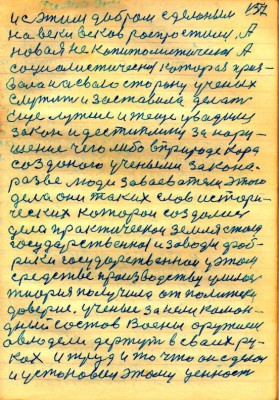 132
и с этим добром сделоным
на веки веков роспростими, А
новая не копитолитическа А
социолистическа которая приз-
вала на свою сторону ученых
служити и заставила делат
еще лутше и теще увадим
закон и дестиплину за нару-
шение чего либо в природе кара
созданого учеными закона.
разве люди заваеватели этого
дела они таких слов истори-
ческих которои создомси
дела практическои земля стои
государственнои и заводи фоб-
рики государственнои у этом
средстве производству умилас
тиория получила от политики
доверие. ученые заняли коман-
дный состов Воены оружием
овлодели держут в своих ру-
ках и труд и то что он сделол
и устоновил этому ценност